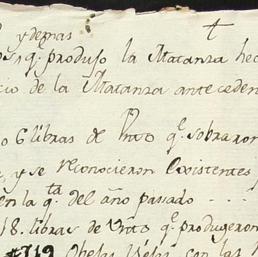 y demas
q.^e produjo la Matanza hec
cio de la Matanza anteceden
6 libras de Unto q.^e sobraron
y se reconocieron Existentes
en la q.^ta del año pasado - - -
18. libras de Unto q.^e produgeron
#719 Obejas Viejas con las